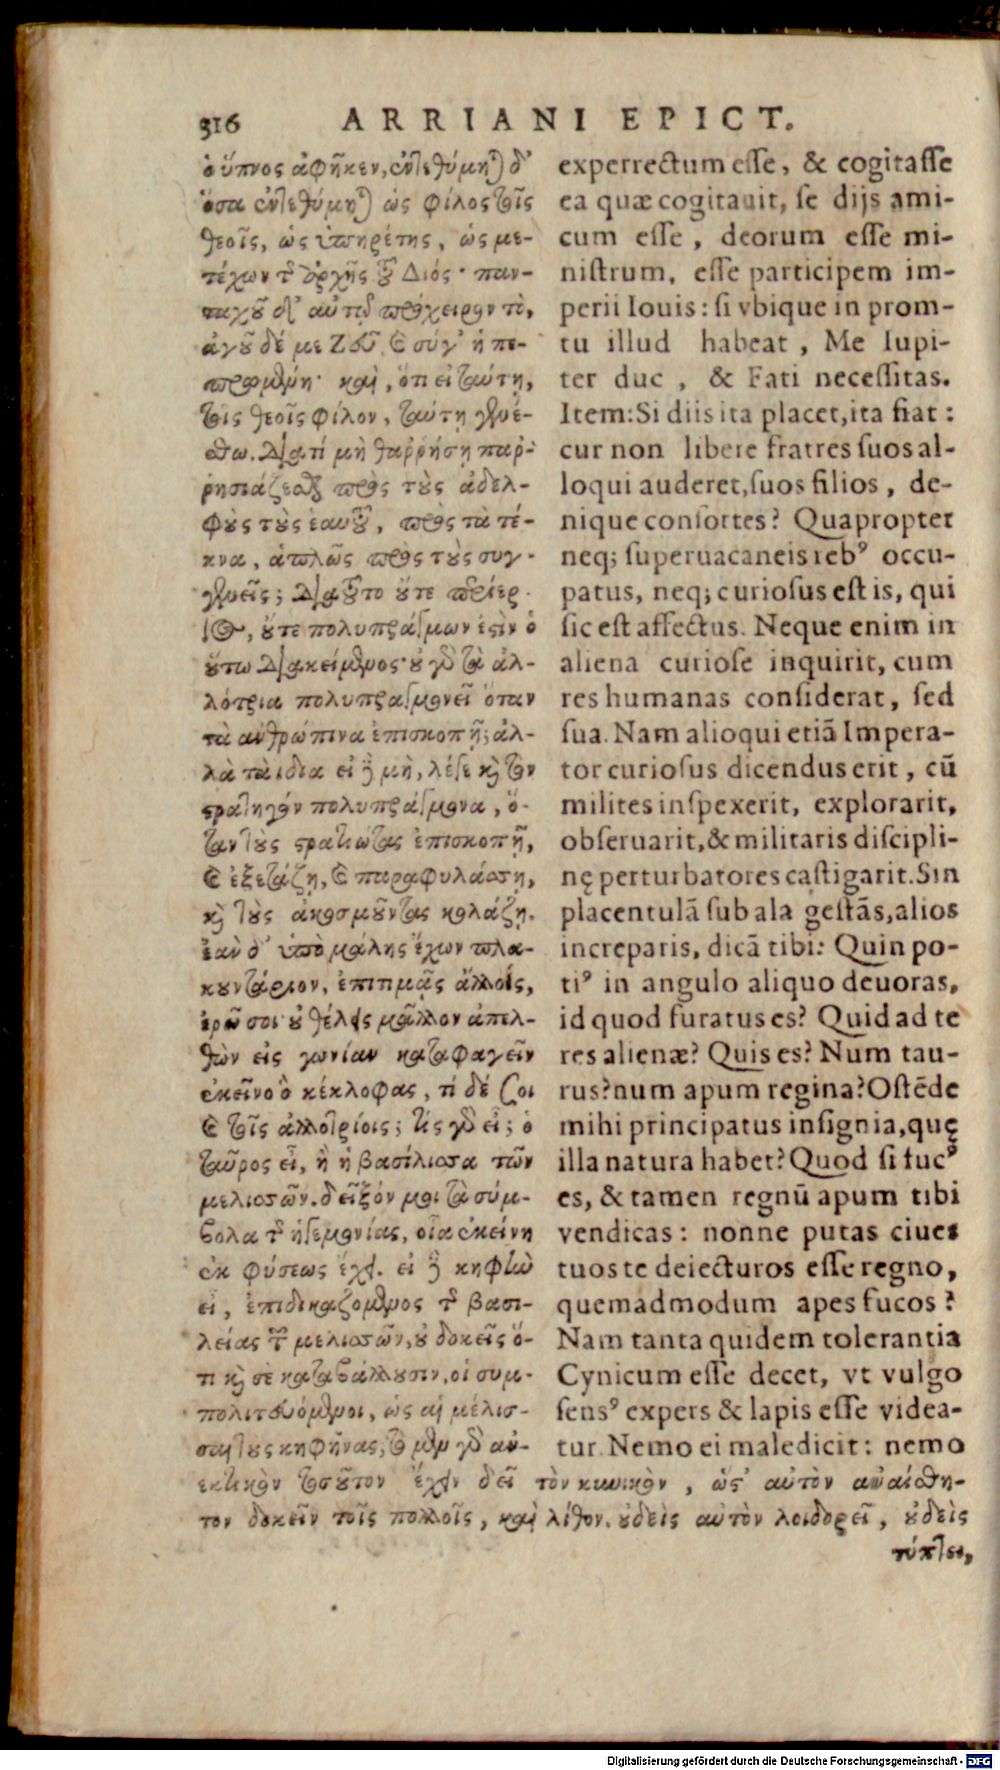 316 ARRIANI EPICT.
ὁ ὕπνος ἀφῆκεν, ἐντεθύμηται δ'
ὅσα ἐντεθύμηται ὡς φίλος τοῖς
θεοῖς, ὡς ὑπηρέτης, ὡς με-
τέχων τῆς ἀρχῆς τοῦ Διός· παν-
ταχοῦ δ' αὐτῷ πρόχειρον τὸ,
ἄγου δέ με Ζεῦ, καὶ σύγ' ἡ πε-
πρωμένη· καὶ, ὅτι εἰ ταύτῃ,
τοῖς θεοῖς φίλον, ταύτῃ γενέ-
σθω. Διατί μὴ θαῤῥήσῃ παῤ-
ρησιάζεσθαι πρὸς τοὺς ἀδελ-
φοὺς τοὺς ἑαυτοῦ, πρὸς τὰ τέ-
κνα, ἁπλῶς πρὸς τοὺς συγ-
γενεῖς; Διατοῦτο οὔτε περίερ-
γος, οὔτε πολυπράγμων ἐστὶν ὁ
οὕτω διακείμενος· οὐ γὰρ τὰ ἀλ-
λότρια πολυπραγμονεῖ ὅταν
τὰ ἀνθρώπινα ἐπισκοπῇ; ἀλ-
λὰ τὰ ἴδια εἰ δὲ μὴ, λέγε καὶ τὸν
στρατηγὸν πολυπράγμονα, ὅ-
ταν τοὺς στρατιώτας ἐπισκοπῇ,
καὶ ἐξετάζῃ, καὶ παραφυλάσσῃ,
καὶ τοὺς ἀκοσμοῦντας κολάζῃ.
ἐὰν δ' ὑπὸ μάλης ἔχων πλα-
κουντάριον, ἐπιτιμᾷς ἄλλοις,
ἐρῶ σοι· οὐ θέλεις μᾶλλον ἀπελ-
θὼν εἰς γωνίαν καταφαγεῖν
ἐκεῖνο ὃ κέκλοφας, τί δέ σοι
καὶ τοῖς ἀλλοτρίοις; τίς γὰρ εἶ; ὁ
ταῦρος εἶ, ἢ ἡ βασίλισσα τῶν
μελισσῶν. δεῖξόν μοι τὰ σύμ-
βολα τῆς ἡγεμονίας, οἷα ἐκείνη
ἐκ φύσεως ἔχει. εἰ δὲ κηφὴν
εἶ, ἐπιδικαζόμενος τῆς βασι-
λείας τῶν μελισσῶν, οὐ δοκεῖς ὅ-
τι καὶ σὲ καταβάλλουσιν, οἱ συμ-
πολιτευόμενοι, ὡς αἱ μέλισ-
σαι τοὺς κηφῆνας; τὸ μὲν γὰρ ἀν-
experrectum esse, & cogitasse
ea quæ cogitauit, se dijs ami-
cum esse, deorum esse mi-
nistrum, esse participem im-
perii Iouis: si vbique in prom-
tu illud habeat, Me Iupi-
ter duc, & Fati necessitas.
Item: Si diis ita placet, ita fiat:
cur non libere fratres suos al-
loqui auderet, suos filios, de-
nique consortes? Quapropter
neq; superuacaneis rebꝰ occu-
patus, neq; curiosus est is, qui
sic est affectus. Neque enim in
aliena curiose inquirit, cum
res humanas considerat, sed
sua. Nam alioqui etiã Impera-
tor curiosus dicendus erit, cũ
milites inspexerit, explorarit,
obseruarit, & militaris discipli-
nę perturbatores castigarit. Sin
placentulã sub ala gestãs, alios
increparis, dicã tibi: Quin po-
tiꝰ in angulo aliquo deuoras,
id quod furatus es? Quid ad te
res alienæ? Quis es? Num tau-
rus? num apum regina? Ostẽde
mihi principatus insignia, quę
illa natura habet? Quod si fucꝰ
es, & tamen regnũ apum tibi
vendicas: nonne putas ciues
tuos te deiecturos esse regno,
quemadmodum apes fucos?
Nam tanta quidem tolerantia
Cynicum esse decet, vt vulgo
sensꝰ expers & lapis esse videa-
tur. Nemo ei maledicit: nemo
εκτικὸν τοσοῦτον ἔχειν δεῖ τὸν κυνικὸν, ὥς' αὐτὸν ἀναίσθη-
τον δοκεῖν τοῖς πολλοῖς, καὶ λίθον. οὐδεὶς αὐτὸν λοιδορεῖ, οὐδεὶς
τύπτει,
Digitalisierung gefördert durch die Deutsche Forschungsgemeinschaft - DFG